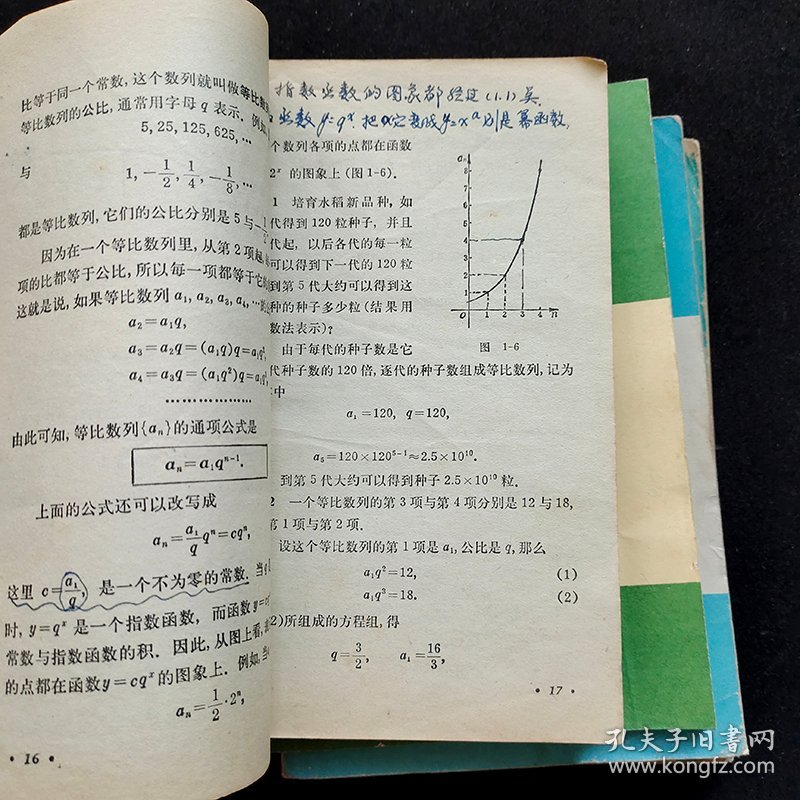 比等于同一个常数,这个数列就叫做等比数
等比数列的公比,通常用字母 q 表示. 例如
5, 25, 125, 625, …
与
1, -1/2, 1/4, -1/8, …
都是等比数列,它们的公比分别是 5 与 -1/2
因为在一个等比数列里,从第 2 项起,
项的比都等于公比,所以每一项都等于它的
这就是说,如果等比数列 a₁, a₂, a₃, a₄, …
a₂=a₁q,
a₃=a₂q=(a₁q)q=a₁q²,
a₄=a₃q=(a₁q²)q=a₁q³,
………………
由此可知,等比数列{aₙ}的通项公式是
aₙ=a₁qⁿ⁻¹.
上面的公式还可以改写成
aₙ=a₁/q qⁿ=cqⁿ,
这里 c=a₁/q, 是一个不为零的常数. 当 q
时, y=qˣ 是一个指数函数, 而函数 y=cqˣ
常数与指数函数的积. 因此,从图上看,
的点都在函数 y=cqˣ 的图象上. 例如,当
aₙ=1/2·2ⁿ,
• 16 •
指数函数的图象都经过(1.1)
函数 y=qˣ. 把 y=xᵃ 是幂函数,
个数列各项的点都在函数
2ˣ 的图象上 (图 1-6).
1 培育水稻新品种,如
代得到 120 粒种子, 并且
代起, 以后各代的每一粒
可以得到下一代的 120 粒
到第 5 代大约可以得到这
种的种子多少粒(结果用
数法表示)?
由于每代的种子数是它
代种子数的 120 倍,逐代的种子数组成等比数列,记为
中
aₙ
8
7
6
5
4
3
2
1
O 1 2 3 4 n
图 1-6
a₁=120, q=120,
a₅=120×120⁵⁻¹≈2.5×10¹⁰.
到第 5 代大约可以得到种子 2.5×10¹⁰ 粒.
2 一个等比数列的第 3 项与第 4 项分别是 12 与 18,
第 1 项与第 2 项.
设这个等比数列的第 1 项是 a₁,公比是 q,那么
a₁q²=12, (1)
a₁q³=18. (2)
2)所组成的方程组,得
q=3/2, a₁=16/3,
• 17 •
孔夫子旧书网
www.kongfz.com